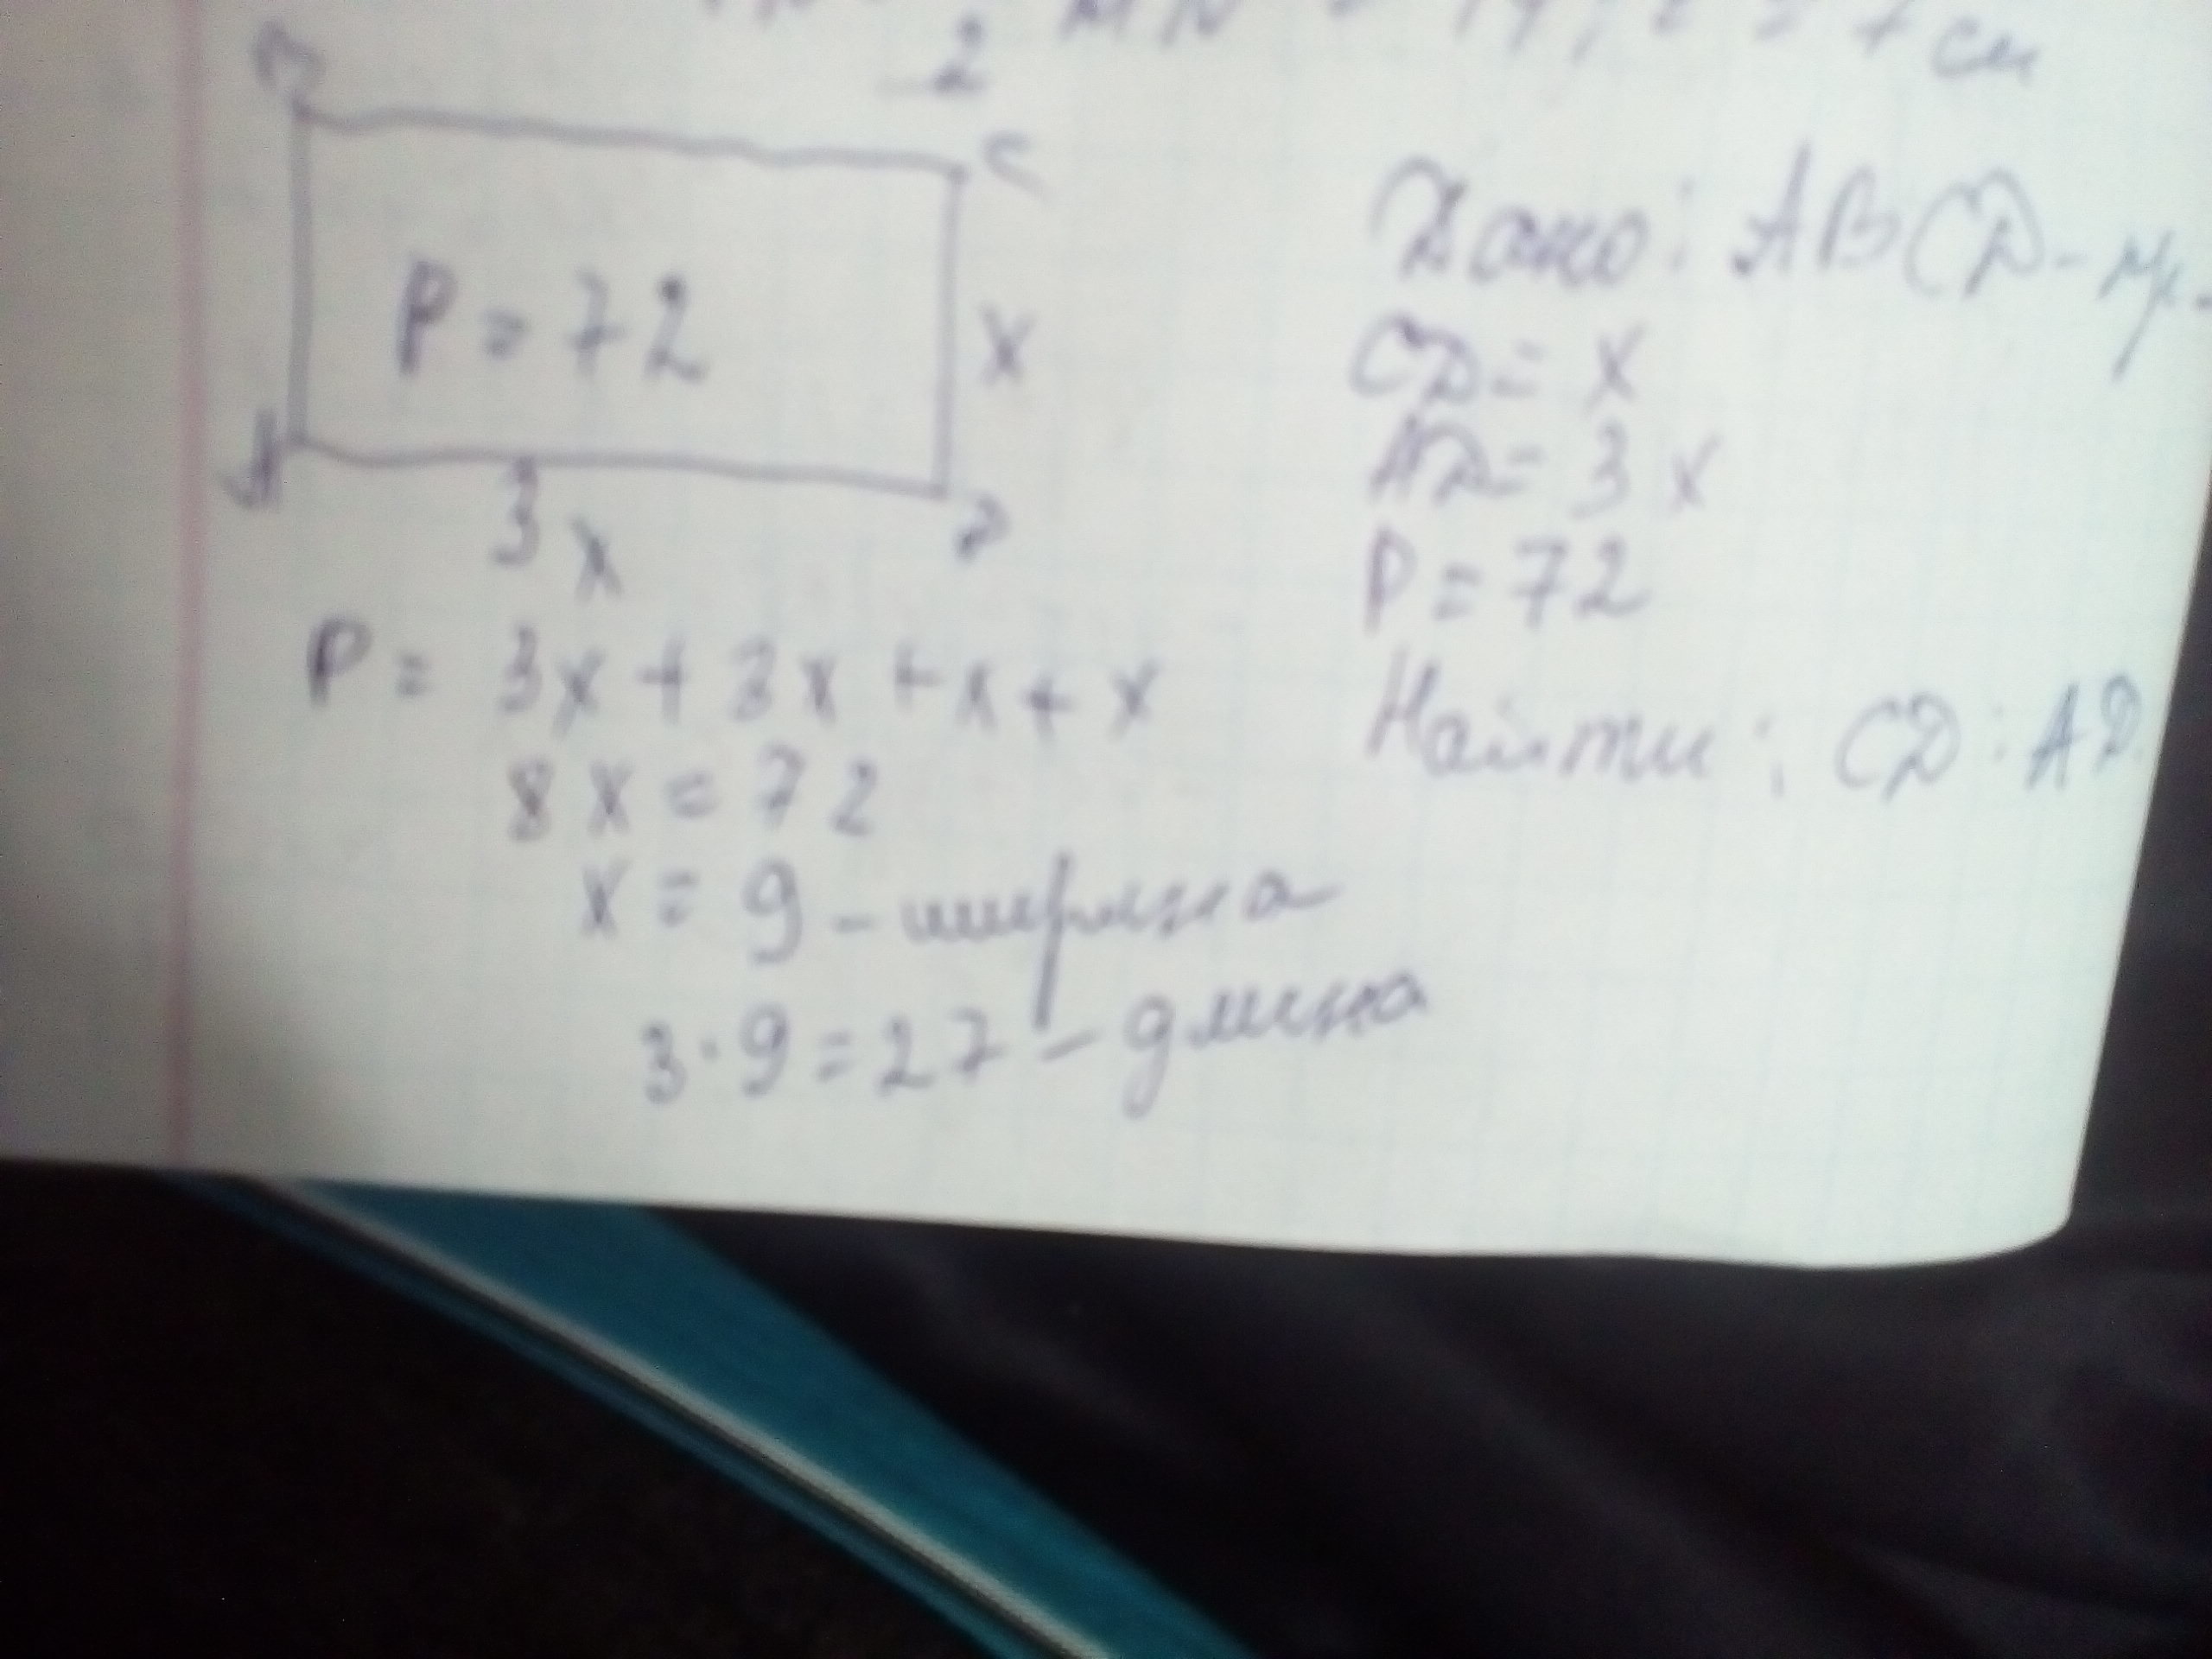 2 MN = 14 : 2 = 7 см
B
C
P = 72
x
A
3x
D
Дано: ABCD - пр.
CD = x
AD = 3x
P = 72
Найти: CD; AD
P = 3x + 3x + x + x
8x = 72
x = 9 - ширина
3 · 9 = 27 - длина